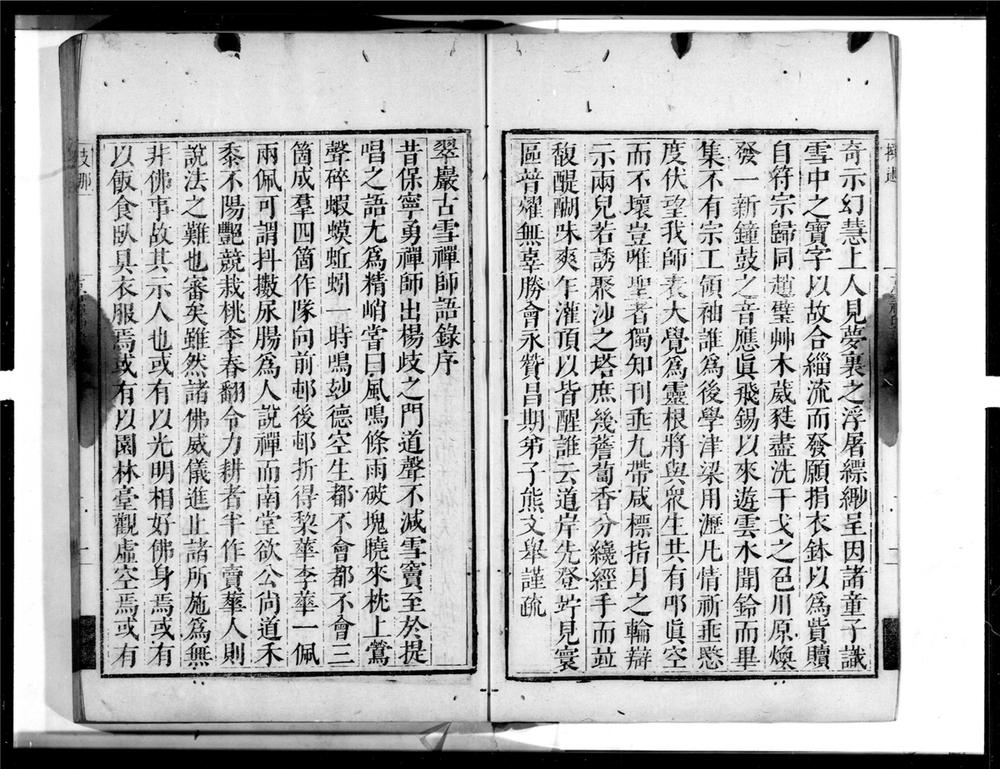 奇示幻慧上人見夢裏之浮屠縹緲呈因諸童子識
雪中之寶字以故合緇流而發願捐衣鉢以為貲贖
自符宗歸同趙璧艸木葳蕤盡洗干戈之色川原煥
發一新鐘鼓之音應眞飛錫以來遊雲水聞鈴而畢
集不有宗工領袖誰為後學津梁用瀝凡情祈垂愍
度伏望我師表大覺為靈根將與眾生共有哪眞空
而不壞豈唯聖者獨知刊垂九帶咸標指月之輪辯
示兩兒若誘聚沙之塔庶幾薝蔔香分繞經手而竝
馥醍醐味爽乍灌頂以皆醒誰云道岸先登竚見寰
區普燿無辜勝會永贊昌期弟子熊文舉謹疏
翠巖古雪禪師語錄序
昔保寧勇禪師出楊歧之門道聲不減雪竇至於提
唱之語尢為精峭嘗曰風鳴條雨破塊曉來枕上鶯
聲碎蝦蟆蚯蚓一時鳴玅德空生都不會都不會三
箇成羣四箇作隊向前邨後邨折得棃華李華一佩
兩佩可謂抖擻屎腸為人說禪而南堂欲公尚道禾
黍不陽豔競栽桃李春翻令力耕者半作賣華人則
說法之難也審矣雖然諸佛威儀進止諸所施為無
非佛事故其示人也或有以光明相好佛身焉或有
以飯食臥具衣服焉或有以園林堂觀虛空焉或有